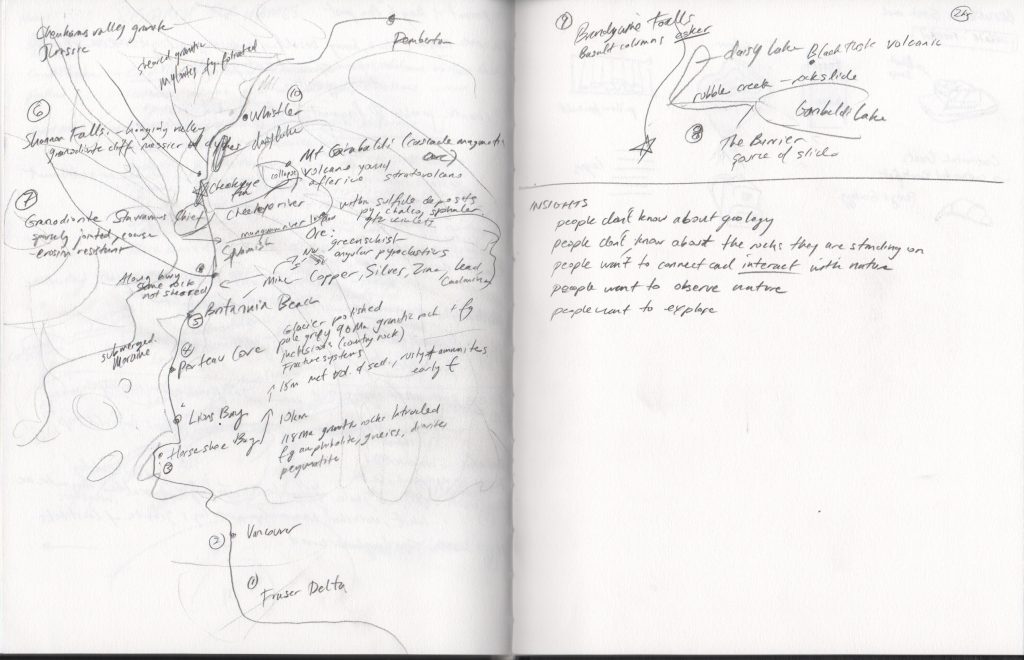 Pemberton
sheared granitic
mylonites fg foliated
10
Whistler
6
Shannon Falls - hanging valley
granodiorite cliff
Mt Garibaldi (cascade magmatic
arc)
collapse
volcano young
after ice stratovolcano
Cheekeye
fan
Cheekeye river
7
Granodiorite Stawamus Chief
sparsely jointed, coarse
- erosion resistant
within sulfide deposits
Ore:
greenschist
angular pyroclastics
Squamish
Along hwy
some rock
not sheared
Mine Copper, Silver, Zinc, Lead,
Cadmium
5
Britannia Beach
submerged
Moraine
4
Porteau Cove
Glacier polished
pale grey 90Ma granitic rock + fg
inclusions (country rock)
Fracture systems
15m met vol. & sed., rusty & ammonites
early
Lions Bay
10km
Horseshoe Bay
3
118Ma granitic rocks intruded
fg amphibolite, gneiss, diorite
pegmatite
2
Vancouver
1
Fraser Delta
9
Brandywine Falls
Basalt columns esker
daisy lake
Black Tusk volcanic
rubble creek - rockslide
Garibaldi Lake
8
The Barrier
source of slide
INSIGHTS
people don't know about geology
people don't know about the rocks they are standing on
people want to connect and interact with nature
people want to observe nature
people want to explore